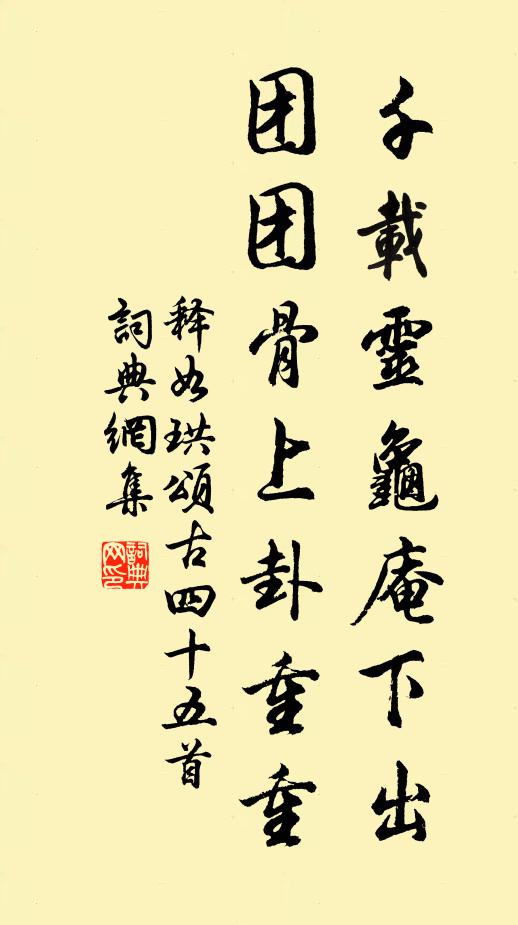 千載靈龜庵下出
团团骨上卦重重
释如珙頌古四十五首
詞典網集
詞典网印